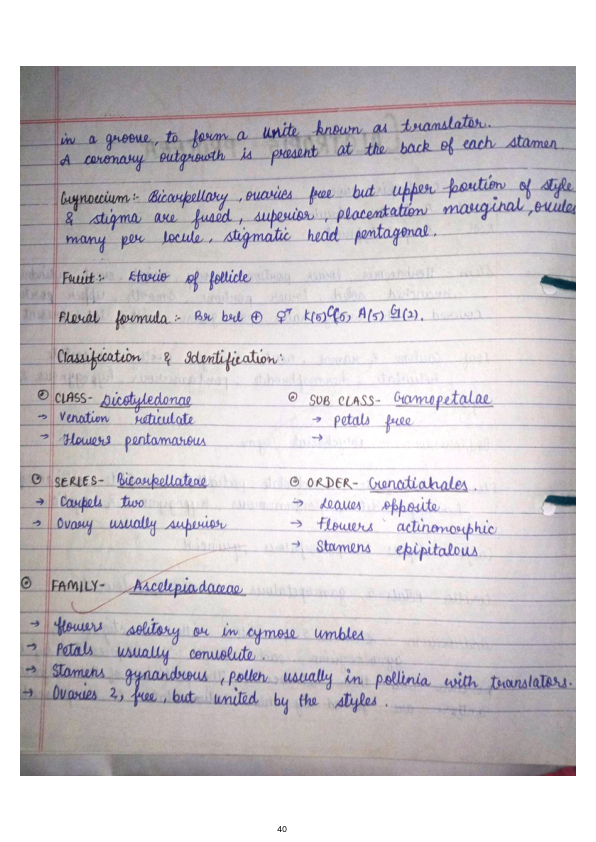 in a groove, to form a unite known as translator.
A coronary outgrowth is present at the back of each stamen.
Gynoccium:- Bicarpellary, ovaries free but upper portion of style
& stigma are fused, superior, placentation marginal, ovules
many per locule, stigmatic head pentagonal.
Fruit:- Etario of follicle
Floral formula:- Br brl ⊕ ⚥ K(5) C(5) A(5) G(2).
Classification & Identification:
CLASS- Dicotyledonae
→ Venation reticulate
→ Flowers pentamarous
SUB CLASS- Gamopetalae
→ Petals free
→
SERIES- Bicarpellateae
→ Carpels two
→ Ovary usually superior
ORDER- Genatiahales.
→ Leaves opposite
→ Flowers actinomorphic
→ Stamens epipitalous
FAMILY- Ascelepiadaceae
→ flowers solitory or in cymose umbles
→ Petals usually convolute.
→ Stamens gynandrous, pollen usually in pollinia with translators.
→ Ovaries 2, free, but united by the styles.
40